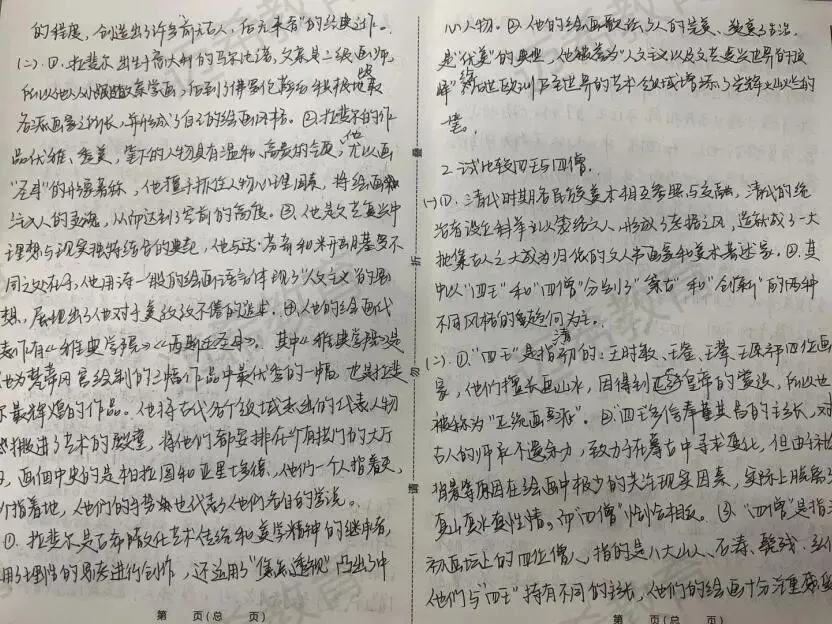 的程度，创造出了许多"前无古人，后无来者"的经典之作。
(二).①.拉斐尔出生于意大利的马尔凯省，父亲是二级画师，
所以他从小跟随父亲学画，后到了佛罗伦萨后积极地吸取
各派画家之所长，并形成了自己的绘画风格。②.拉斐尔的作
品优雅、秀美，笔下的人物具有温和、高贵的气质，他尤以画
"圣母"的形象著称，他擅于抓住人物心理因素，将绘画
注入人的灵魂，从而达到了空前的高度。③.他是文艺复兴中
理想与现实独特结合的典范，他与达·芬奇和米开朗基罗不
同之处在于，他用诗一般的绘画语言体现了"人文主义"的思
想，展现出了他对于美孜孜不倦的追求。④.他的绘画代
表作有《雅典学院》《西斯廷圣母》。其中《雅典学院》是
他为梵蒂冈宫绘制的三幅作品中最优秀的一幅，也是拉斐
尔最辉煌的作品。他将古代各个领域杰出的代表人物
搬进了艺术的殿堂，将他们都安排在一个有拱门的大厅
画面中央的是柏拉图和亚里士多德，他们一个人指着天，
个指着地，他们的手势也代表了他们各自的学说。
①.拉斐尔是古希腊文化艺术传统和美学精神的继承者，
用了理性的思考进行创作，还运用了"焦点透视"凸出了中
第　页(总　页)
心人物。②.他的绘画歌颂了人的完美、
是"优美"的典型，他被誉为"人文主义以及文艺复兴世界的顶
峰"给欧洲乃至世界的艺术领域增添了光辉灿烂的
一笔。
2.试比较四王与四僧。
(一)①.清代时期各民族美术相互参照与交融，清代的统
治者设立科举制以笼络文人，形成了 之风，造就成了一大
批集古人之大成为归依的文人书画家和美术著述家。②.其
中以"四王"和"四僧"分别了"摹古"和"创新"的两种
不同风格的 为主。
(二).①."四王"是指清初的：王时敏、王鉴、王翚、王原祁四位画
家，他们擅长画山水，因得到 皇帝的赏识，所以也
被称为"正统画派"。②.四王多信奉董其昌的主张，对
古人的师承不遗余力，致力于在摹古中寻求变化，但由于社
背景等原因在绘画中极少的关注现实因素，实际上脱离了
真山真水真性情。而"四僧"恰恰相反。③."四僧"是指清
初画坛上的四位僧人，指的是八大山人、石涛、髡残、弘仁
他们与"四王"持有不同的主张，他们的绘画十分注重
第　页(总　页)